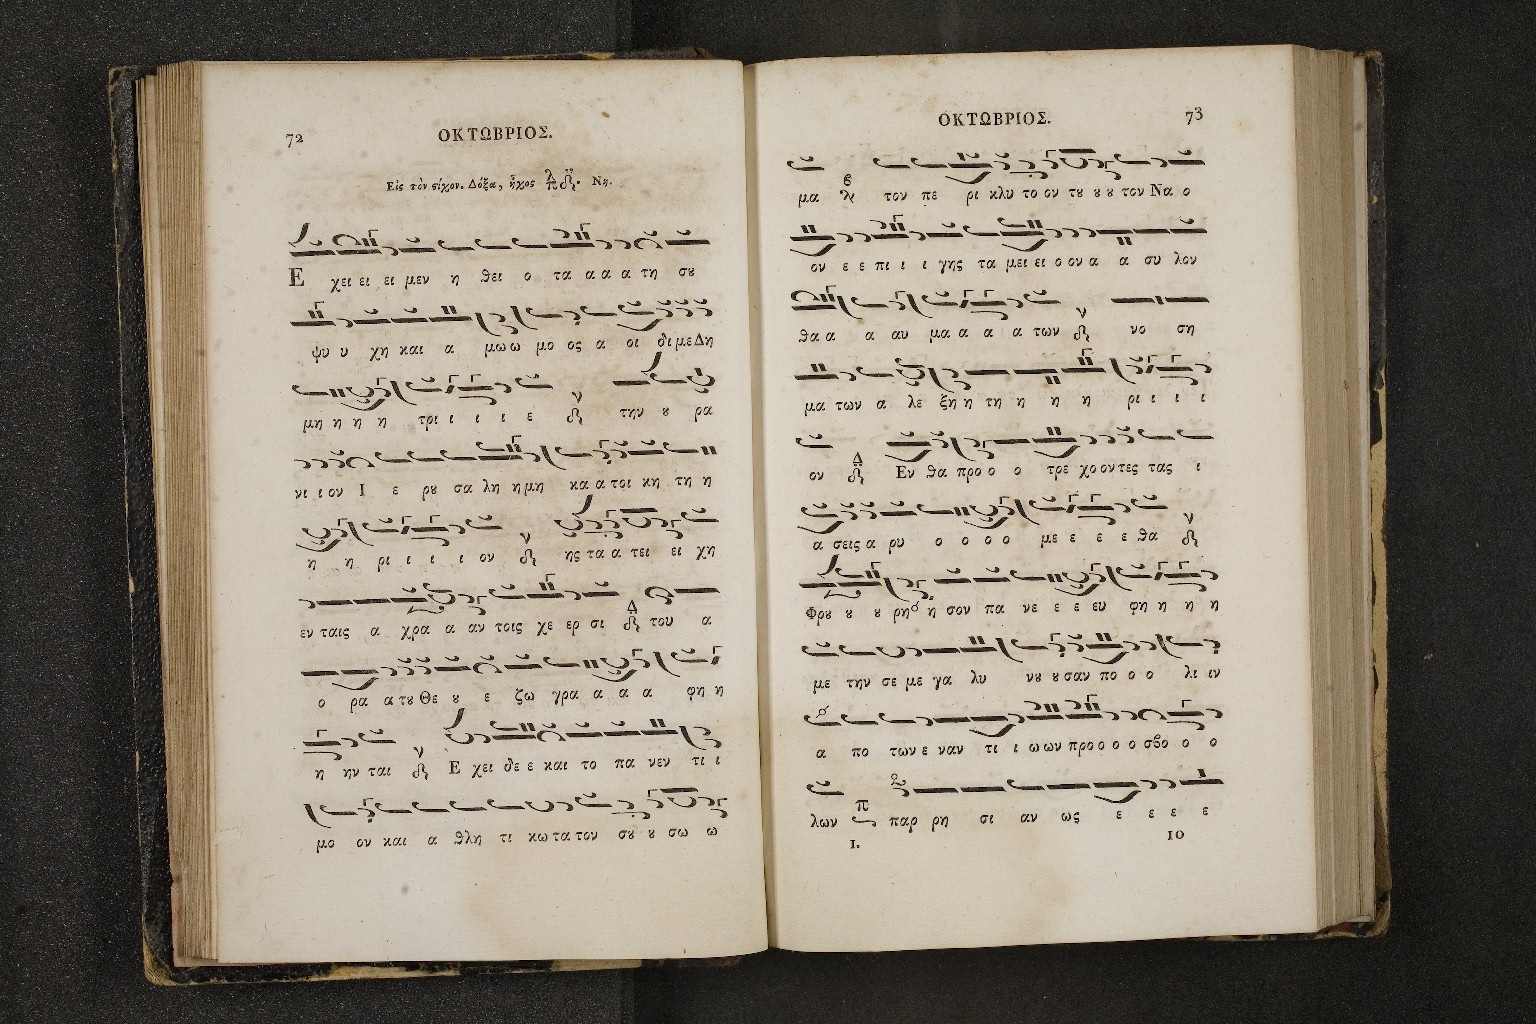 72
ΟΚΤΩΒΡΙΟΣ.
Εἰς τὸν ϛίχον. Δόξα, ἦχος Νη.
Ε χει ει ει μεν η θει ο τα α α α τη σȣ
ψυ υ χη και α μω ω μο ος α οι δι με Δη
μη η η η τρι ι ι ι ε την ȣ ρα
νι ι ον Ι ε ρȣ σα λη η μη κα α τοι κη τη η
η η ρι ι ι ι ον ης τα α τει ει χη
εν ταις α χρα α αν τοις χε ερ σι Δ του α
ο ρα α τȣ Θε ȣ ε ζω γρα α α α φη η
η ην ται Ε χει δε ε και το πα νεν τι ι
μο ον και α θλη τι κω τα τον σȣ ȣ σω ω
ΟΚΤΩΒΡΙΟΣ.
73
μα τον πε ρι κλυ το ον τȣ ȣ ȣ τον Να ο
ον ε ε πι ι ι γης τα μει ει ο ον α α συ λον
θα α α αυ μα α α α των νο ση
μα των α λε ξη η τη η η η ρι ι ι ι
ον Δ Εν θα προ ο ο τρε χο ον τες τας ι
α σεις α ρυ ο ο ο ο με ε ε ε θα
Φρȣ ȣ ȣ ρη ή σον πα νε ε ε ευ φη η η η
με την σε με γα λυ νȣ ȣ σαν πο ο ο λι ιν
α πο των ε ναν τι ι ω ων προ ο ο ο σβο ο ο
λων π παρ ρη σι αν ως ε ε ε ε
I. 10